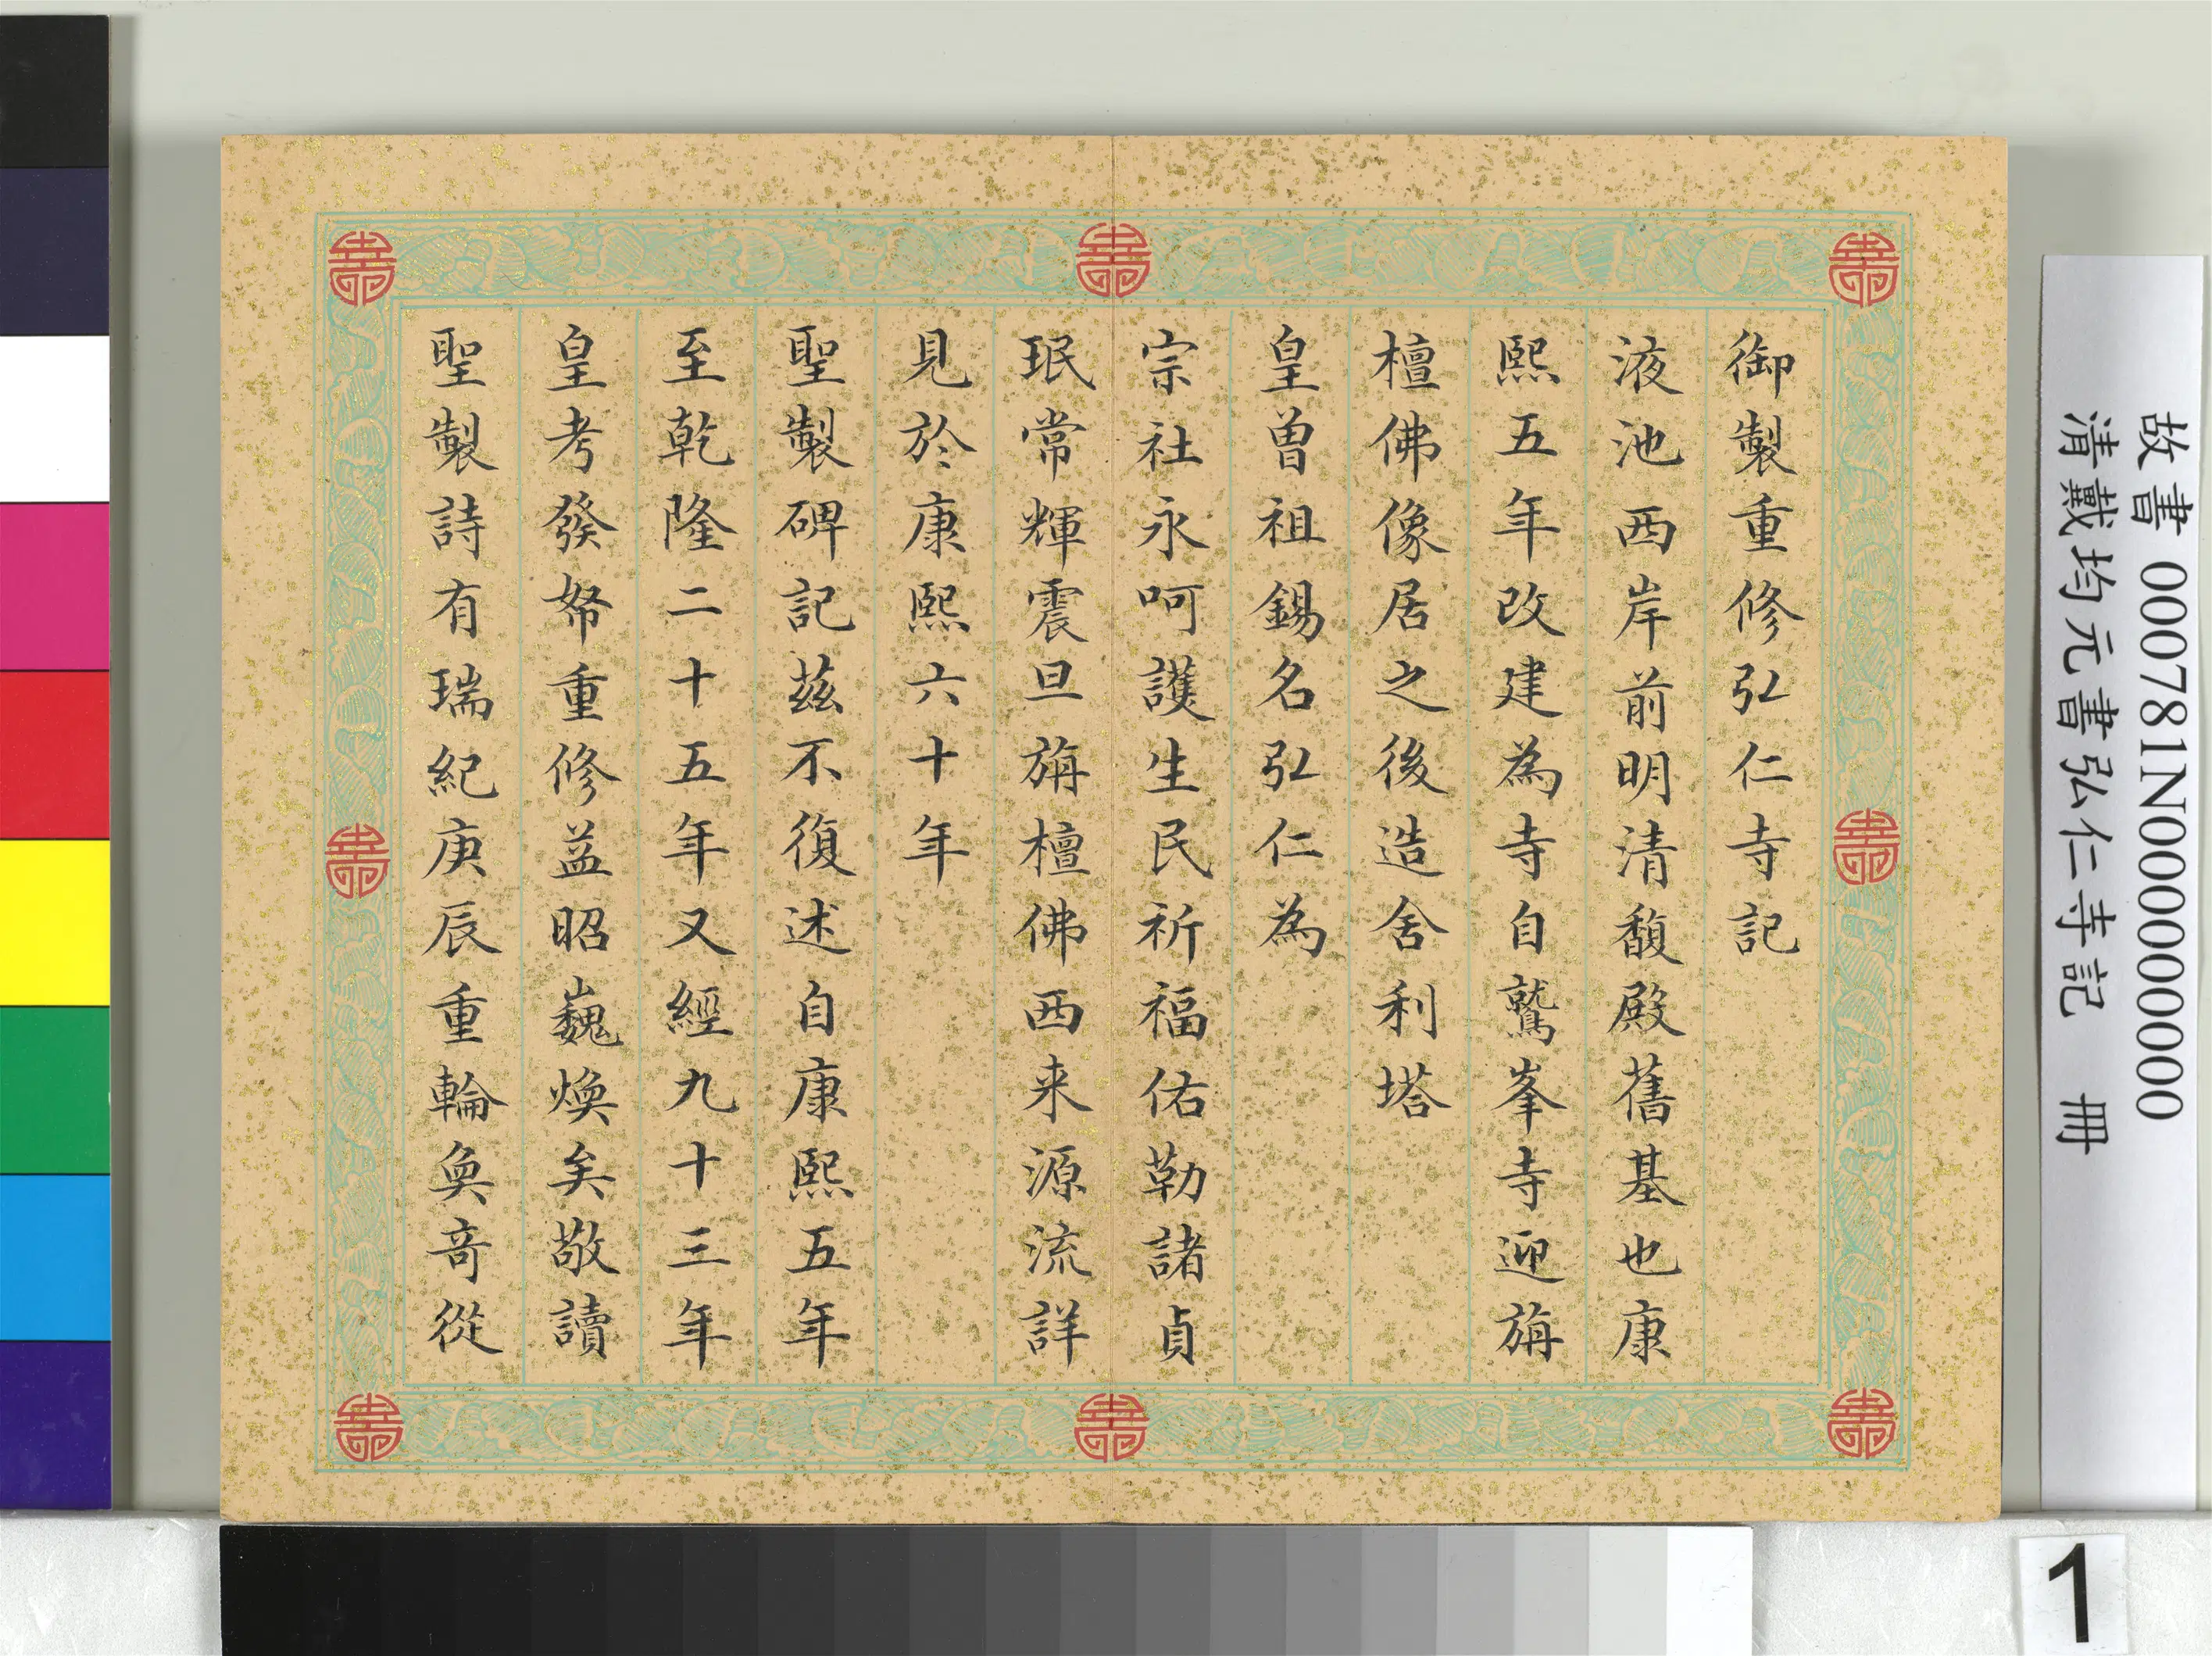 御製重修弘仁寺記
液池西岸前明清馥殿舊基也康
熙五年改建為寺自鷲峯寺迎旃
檀佛像居之後造舍利塔
皇曾祖錫名弘仁為
宗社永呵護生民祈福佑勒諸貞
珉常輝震旦旃檀佛西来源流詳
見於康熙六十年
聖製碑記茲不復述自康熙五年
至乾隆二十五年又經九十三年
皇考發帑重修益昭巍煥矣敬讀
聖製詩有瑞紀庚辰重輪奐竒從
故書 000781N000000000
清戴均元書弘仁寺記 冊
1